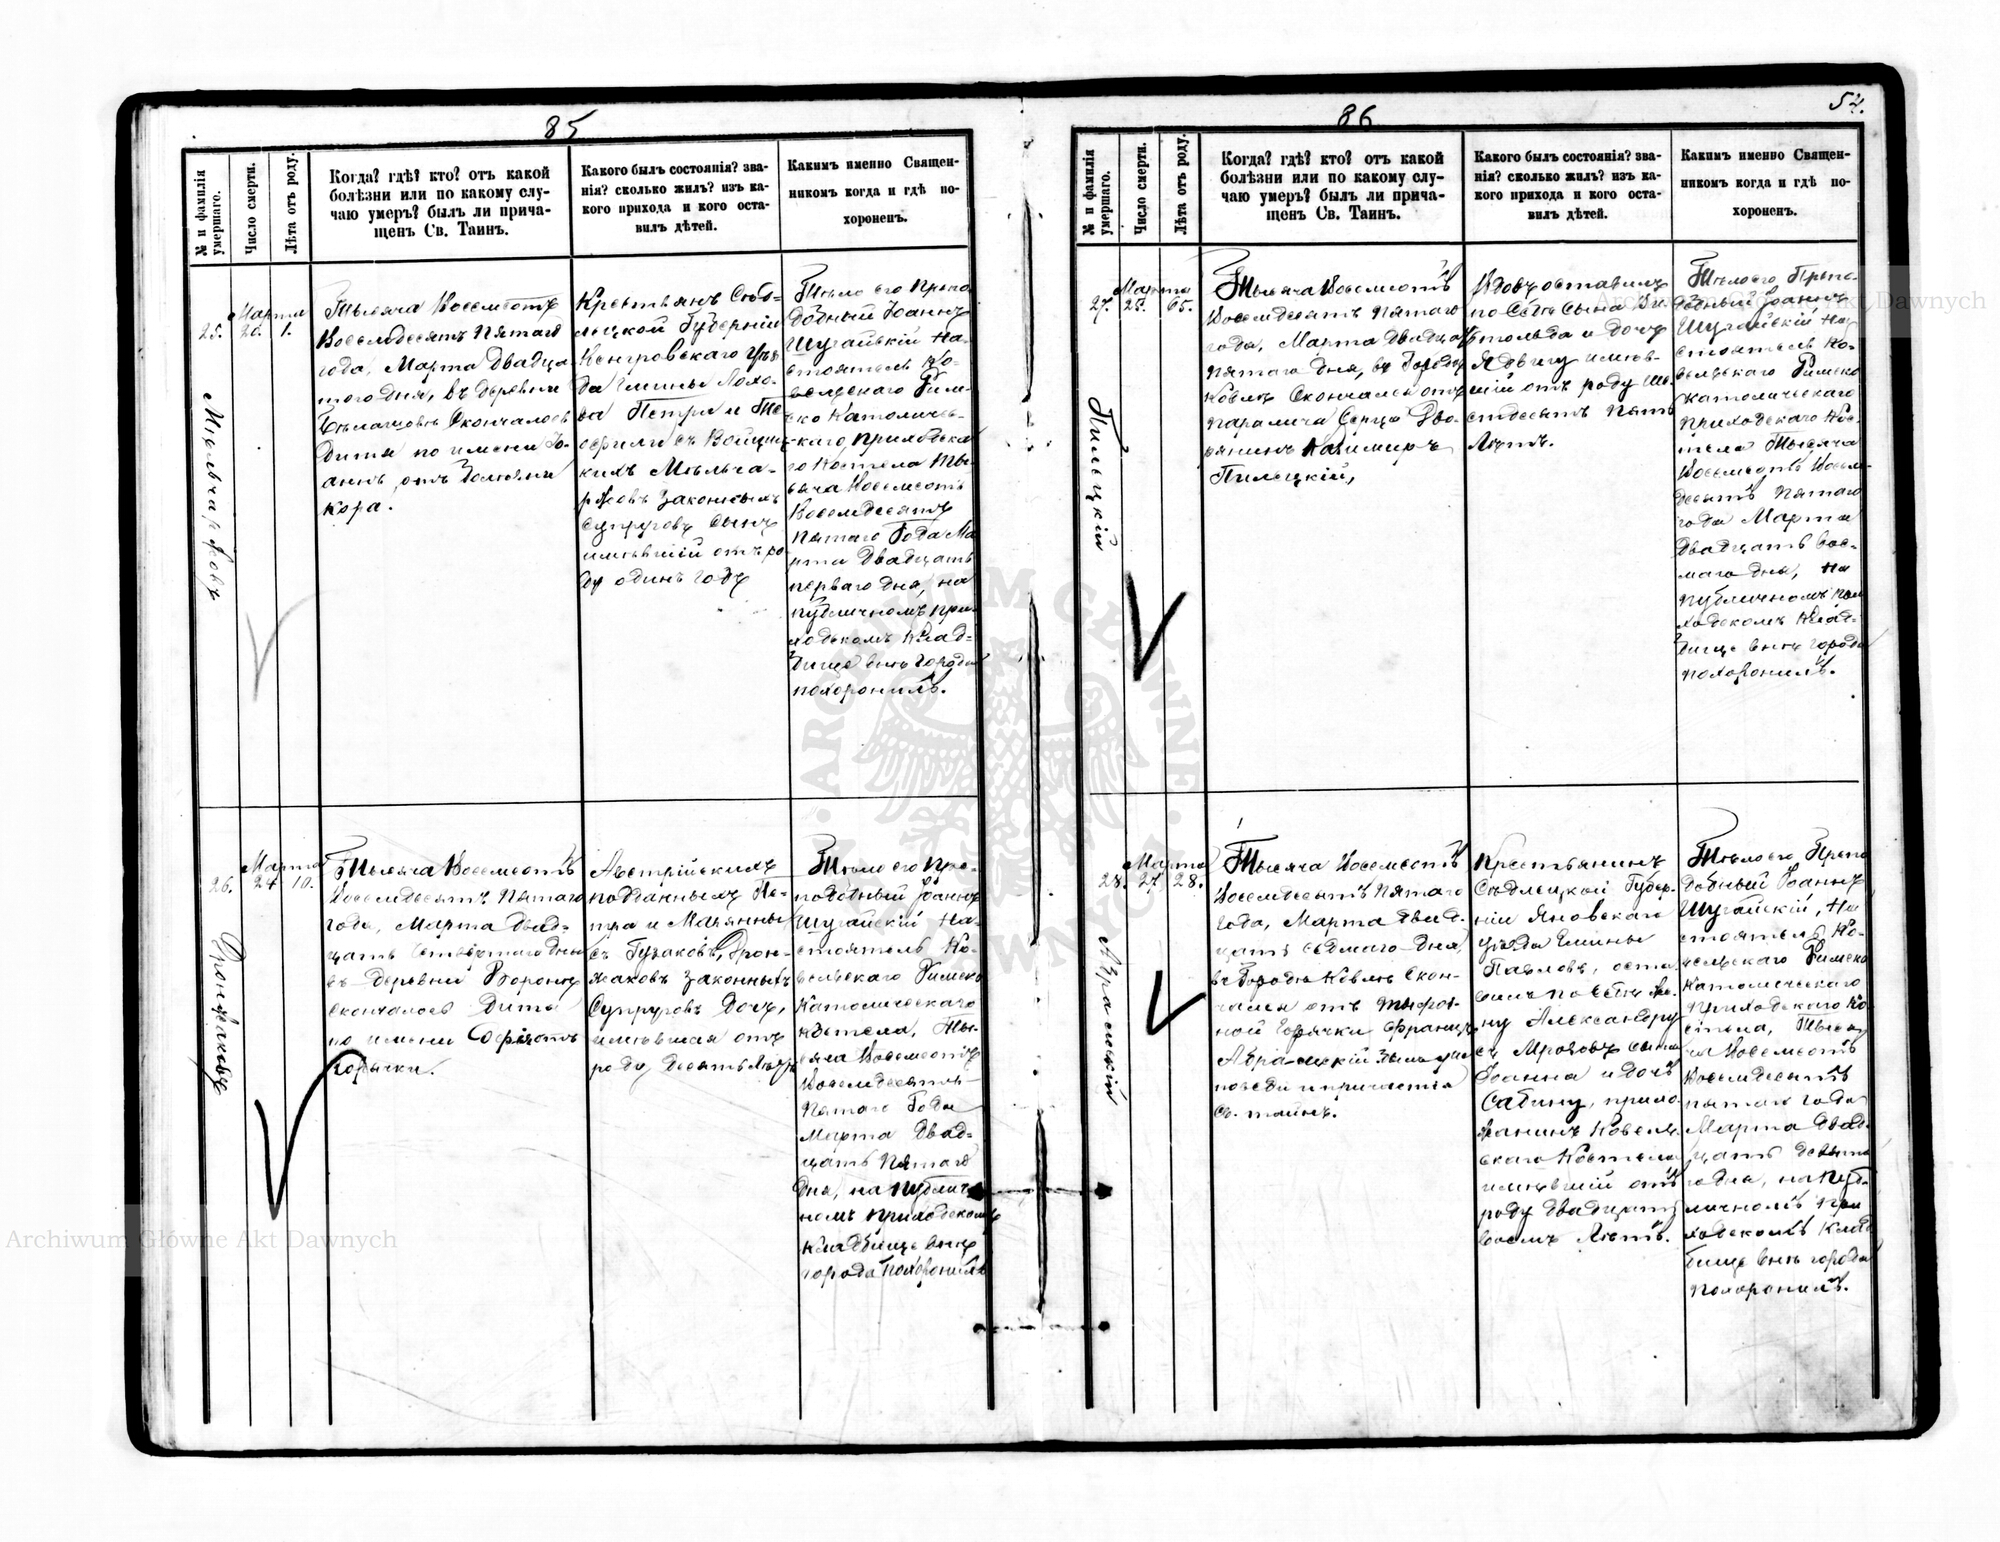 85
№ и фамилія умершаго.
Число смерти.
Лѣта отъ роду.
Когда? гдѣ? кто? отъ какой
болѣзни или по какому слу-
чаю умеръ? былъ ли прича-
щенъ Св. Таинъ.
Какого былъ состоянія? зва-
нія? сколько жилъ? изъ ка-
кого прихода и кого оста-
вилъ дѣтей.
Какимъ именно Священ-
никомъ когда и гдѣ по-
хороненъ.
25.
Марта
20.
1.
Тысяча Восемсотъ
Восемдесятъ Пятаго
года, Марта Двадца
таго дня, въ деревни
скончалось
Дитя по имени Іо-
аннъ, отъ
кора.
Крестьянъ Сѣд-
лецкой Губерніи
Венгровскаго Уѣз
да Гмины
Петра и Те
офили съ
кихъ
законныхъ
супруговъ сынъ
имѣвшій отъ ро
ду одинъ годъ
Тѣло его Препо
добный Іоаннъ
Шугайскій На-
стоятель Ко-
вельскаго Рим-
ско Католичес-
каго Приходска
го Костела Ты-
сяча Восемсотъ
Восемдесятъ
Пятаго Года Ма
рта Двадцать
перваго дня, на
публичномъ при-
ходскомъ Клад-
бище внѣ города
похоронилъ.
26.
Марта
24
10.
Тысяча Восемсотъ
Восемдесятъ Пятаго
года, Марта Двад-
цать Четвертаго дня
въ деревни
скончалось Дитя
по имени отъ
горячки.
Австрійскихъ
подданныхъ Пе-
тра и Марьянны
съ Гузаковъ,
законныхъ
Супруговъ Дочь,
имѣвшая отъ
роду десять лѣтъ
Тѣло его Пре-
подобный Іоаннъ
Шугайскій На-
стоятель Ко-
вельскаго Римско
Католическаго
Костела, Ты-
сяча Восемсотъ
Восемдесятъ
Пятаго Года
Марта Двад-
цать Пятаго
дня, на публич-
номъ приходскомъ
кладбище внѣ
города похоронилъ
86
52.
№ и фамилія умершаго.
Число смерти.
Лѣта отъ роду.
Когда? гдѣ? кто? отъ какой
болѣзни или по какому слу-
чаю умеръ? былъ ли прича-
щенъ Св. Таинъ.
Какого былъ состоянія? зва-
нія? сколько жилъ? изъ ка-
кого прихода и кого оста-
вилъ дѣтей.
Какимъ именно Священ-
никомъ когда и гдѣ по-
хороненъ.
27.
Марта
25.
65.
Пилецкій
Тысяча Восемсотъ
Восемдесятъ Пятаго
года, Марта Двадцать
пятаго дня, въ Городѣ
Ковлѣ Скончался отъ
паралича Серца Дво-
рянинъ Казимиръ
Пилецкій,
Вдовъ оставилъ
по Себѣ сына Ви
тольда и дочь
Ядвигу имѣв-
шій отъ роду ше
стдесятъ пять
Лѣтъ.
Тѣло его, Препо-
добный Іоаннъ
Шугайскій На-
стоятель Ко-
вельскаго Римско
Католическаго
Приходскаго Кос-
тела Тысяча
Восемсотъ Восем-
десятъ Пятаго
года Марта
Двадцать вос-
маго дня, на
публичномъ при
ходскомъ Клад-
бище внѣ города
похоронилъ.
28.
Марта
27.
28.
Абрамскій
Тысяча Восемсотъ
Восемдесятъ Пятаго
года, Марта Двад-
цать седмаго дня,
въ Городѣ Ковлѣ Скон-
чался отъ тифоз-
ной горячки Францъ
Абрамскій
повѣди и причастія
Св. тайнъ.
Крестьянинъ
Сѣдлецкой Губер-
ніи Яновскаго
уѣзда Гмины
Павловъ, оста
вилъ по себѣ же-
ну Александру
съ Мрозовъ сына
Іоанна и дочь
Сабину, прихо
жанинъ Ковель-
скаго Костела
имѣвшій отъ
роду двадцать
восемъ Лѣтъ.
Тѣло его Препо
добный Іоаннъ
Шугайскій, На
стоятель Ко-
вельскаго Римско
Католическаго
Приходскаго Ко-
стела, Тыся
ча Восемсотъ
Восемдесятъ
пятаго года
Марта Двад-
цать девята
го дня, на пуб-
личномъ при
ходскомъ Клад
бище внѣ города
похоронилъ.
Archiwum Główne Akt Dawnych
Archiwum Główne Akt Dawnych